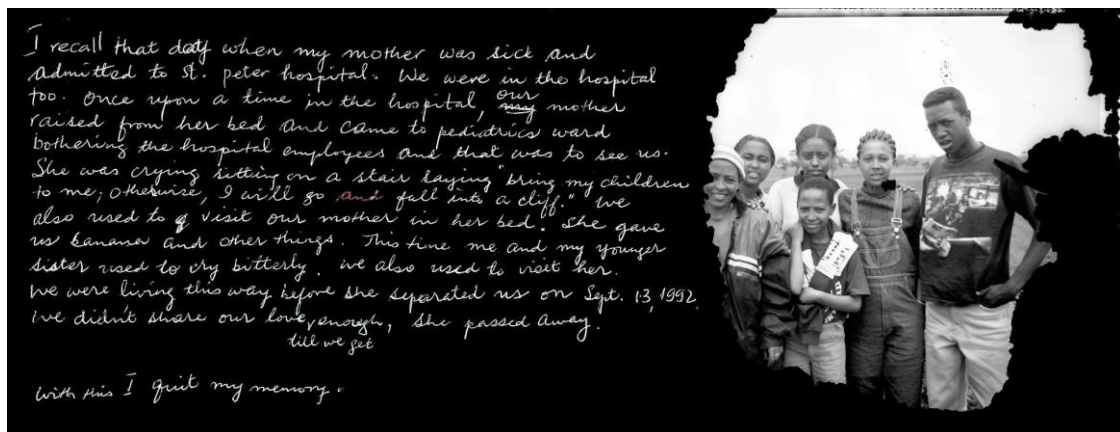 I recall that day when my mother was sick and
admitted to St. peter hospital. We were in the hospital
too. Once upon a time in the hospital, our my mother
raised from her bed and came to pediatrics ward
bothering the hospital employees and that was to see us.
She was crying sitting on a stair saying "bring my children
to me; otherwise, I will go and fall into a cliff." We
also used to visit our mother in her bed. She gave
us banana and other things. This time me and my younger
sister used to cry bitterly. we also used to visit her.
We were living this way before she separated us on Sept. 13, 1992.
We didn't share our love enough, she passed away.
till we get
with this I quit my memory.